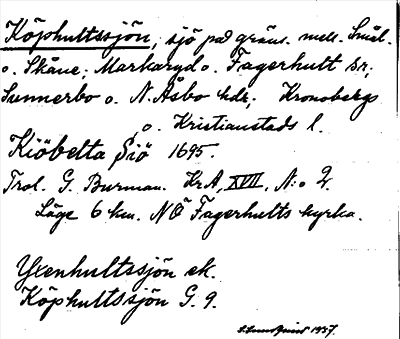 Köphultssjön, sjö på gräns. mell. Smål.
o. Skåne; Markaryd o. Fagerhult sn;
Sunnerbo o. N. Åsbo hdr; Kronobergs
o. Kristianstads l.
Kiöbelta Siö 1695.
Trol. G. Burman. KrA, XVII, N:o 2.
Läge 6 km. NÖ Fagerhults kyrka.
Yxenhultssjön ek.
Köphultssjön G. 9.
S. Lundquist 1937.